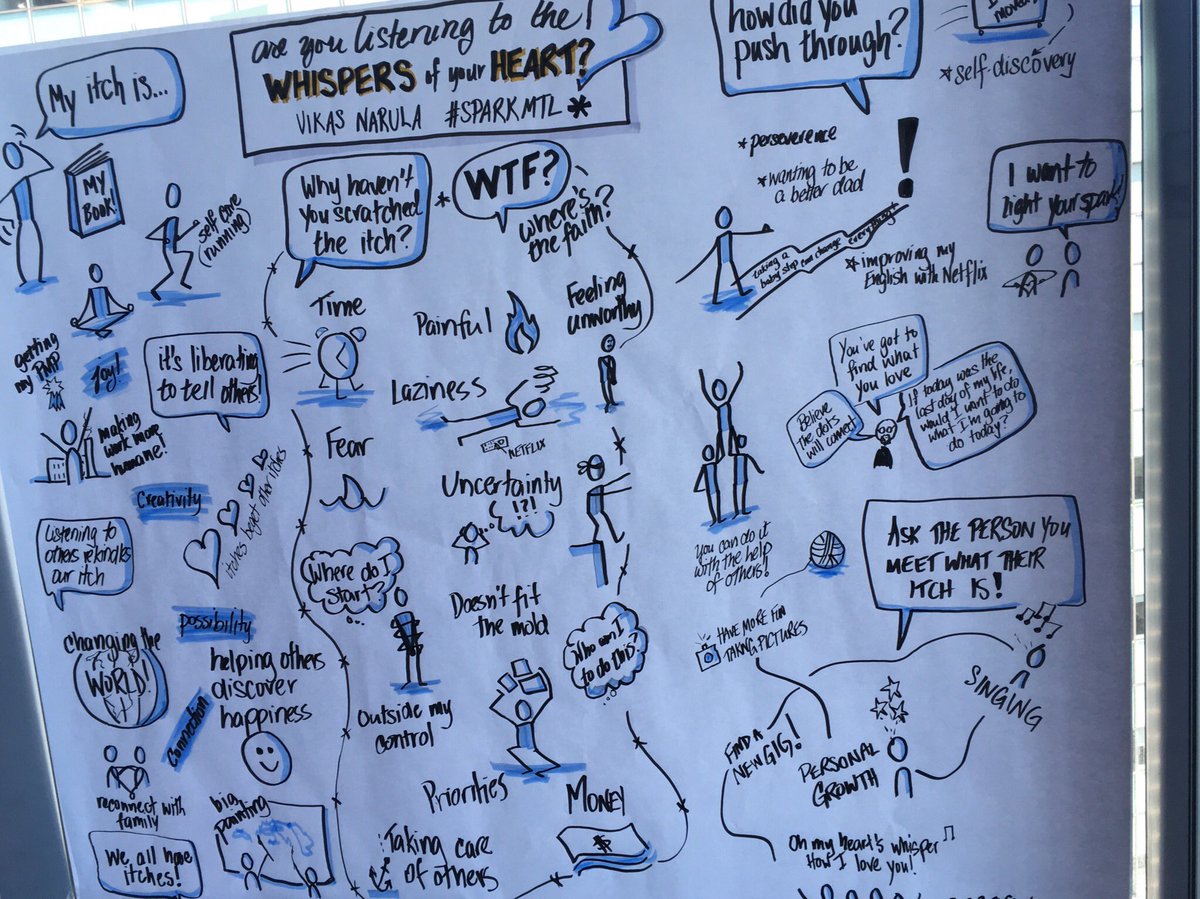 are you listening to the
WHISPERS of your HEART?
VIKAS NARULA #SPARKMTL *
My itch is...
MY
Book!
self care
(running)
getting
my PMP
Joy!
it's liberating
to tell others!
making
work more
humane!
Creativity
itches beget other itches
Listening to
others rekindles
our itch
possibility
changing the
WORLD!
helping others
discover
happiness
Connection
reconnect with
family
big
painting
We all have
itches!
Why haven't
you scratched
the itch?
* WTF?
where's
the faith?
Time
Painful
Feeling
unworthy
Laziness
NETFLIX
Fear
Uncertainty
!?!
Where do I
start?
Doesn't fit
the mold
Who am I
to do this?
Outside my
control
Priorities
MONEY
$
Taking care
of others
how did you
push through?
*self-discovery
*perseverence
*wanting to be
a better dad
!
taking a
baby step can change everything!
*improving my
English with Netflix
I want to
light your spark!
You've got to
find what
you love
Believe
the dots
will connect
If today was the
last day of my life,
would I want to do
what I'm going to
do today?
you can do it
with the help
of others!
ASK THE PERSON YOU
MEET WHAT THEIR
ITCH IS!
HAVE MORE FUN
TAKING PICTURES
SINGING
FIND A
NEW GIG!
PERSONAL
GROWTH
Oh my heart's whisper
How I love you!